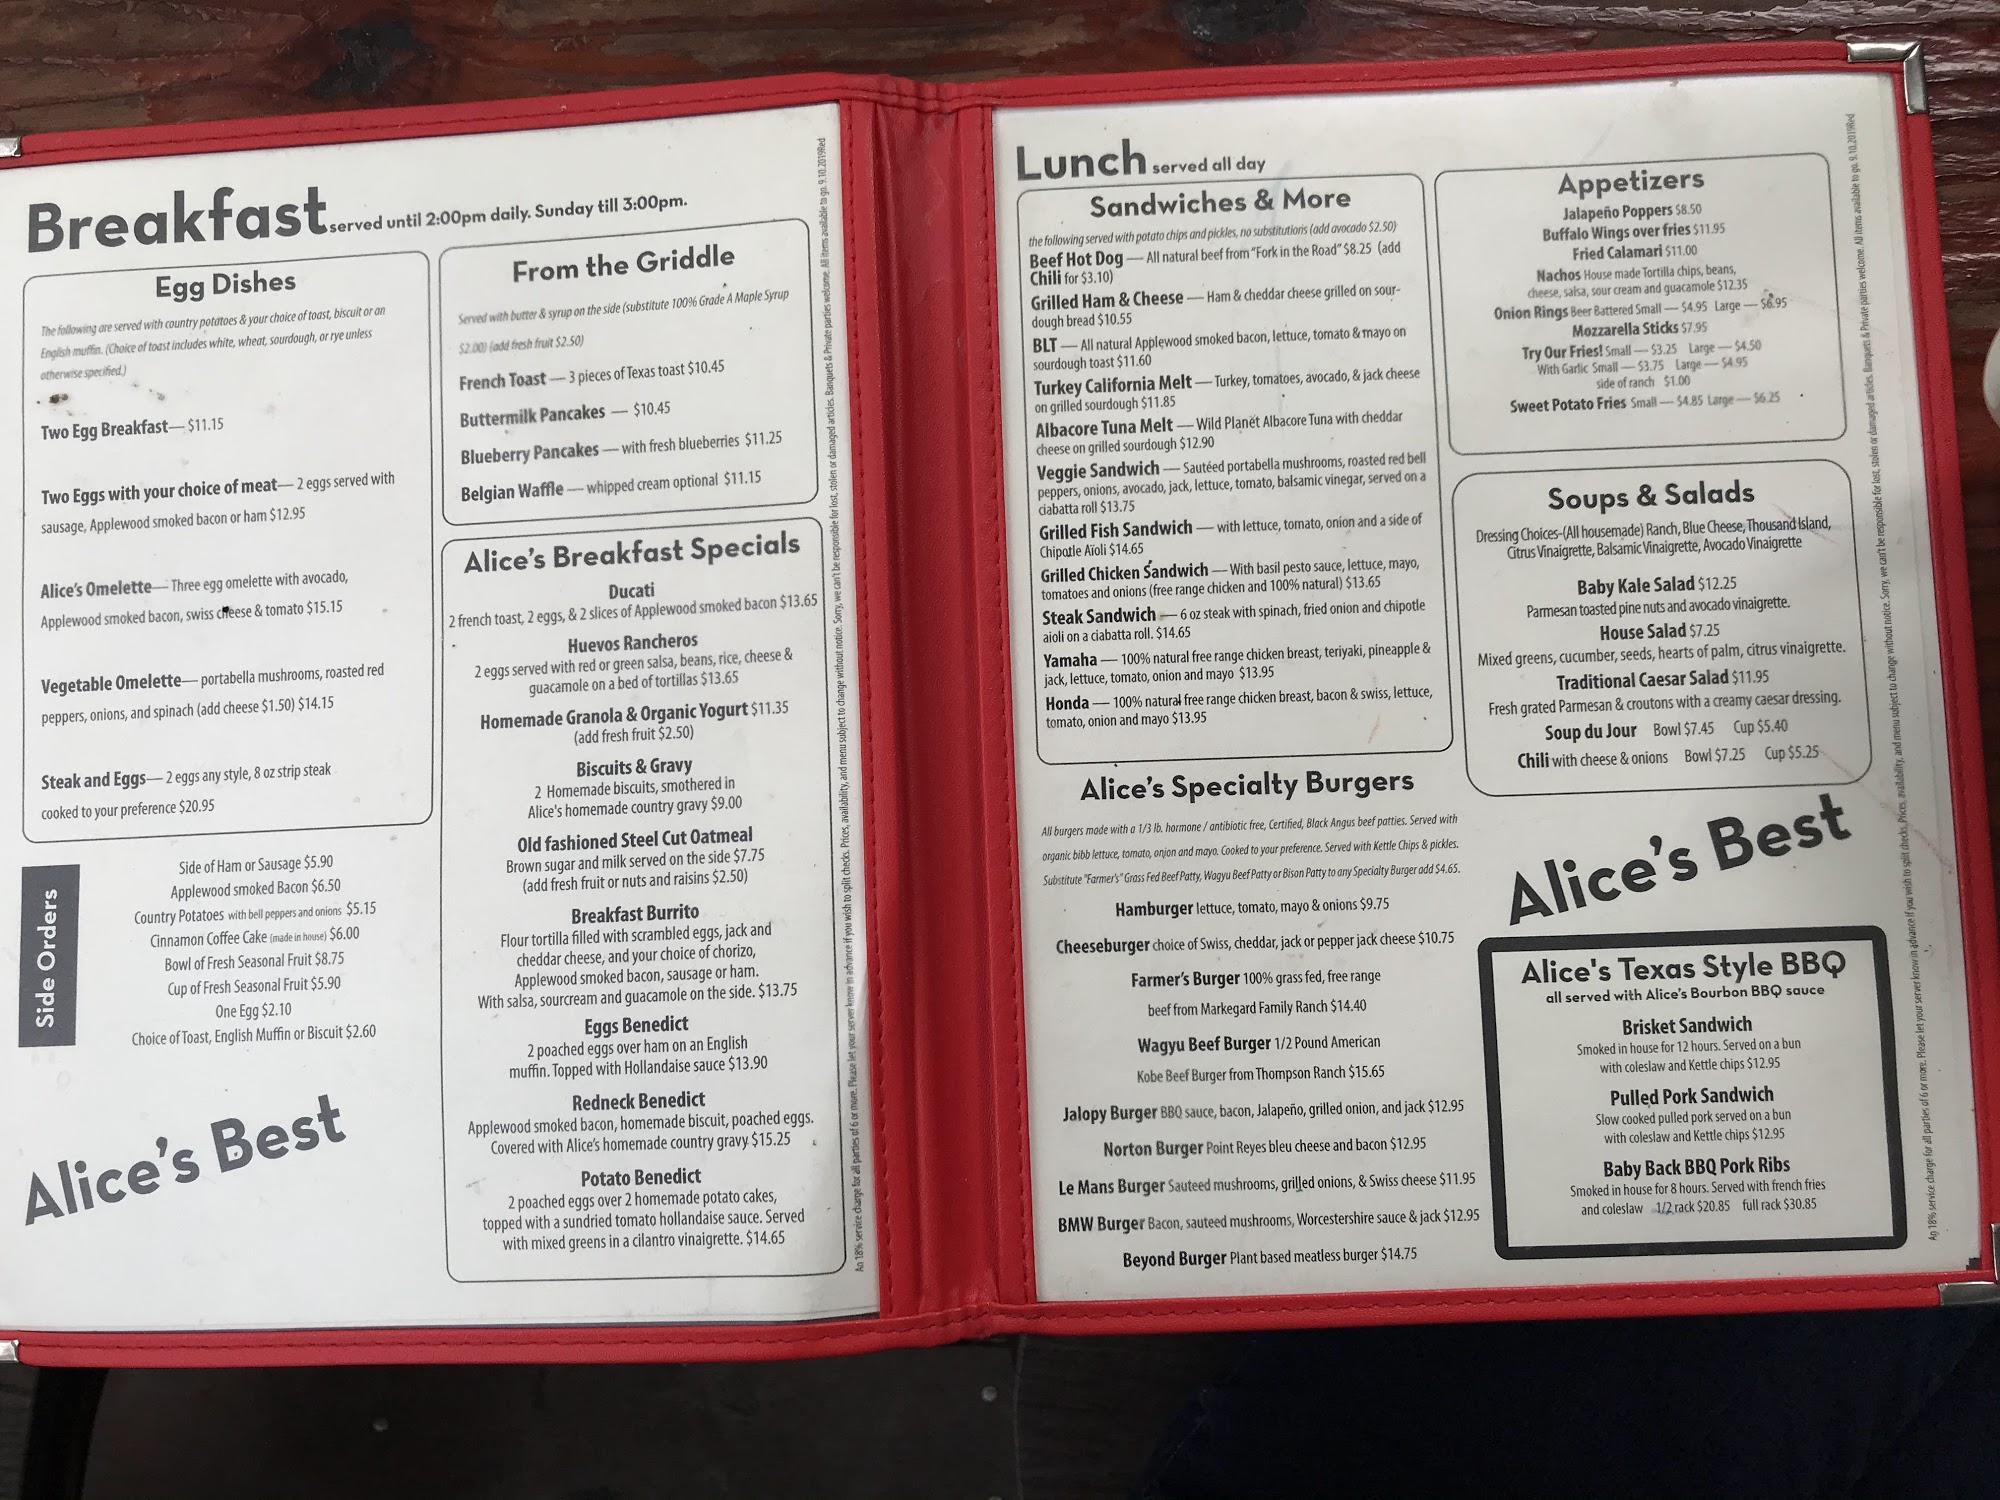 Breakfast served until 2:00pm daily. Sunday till 3:00pm.
Egg Dishes
The following are served with country potatoes & your choice of toast, biscuit or an
English muffin. (Choice of toast includes white, wheat, sourdough, or rye unless
otherwise specified.)
Two Egg Breakfast— $11.15
Two Eggs with your choice of meat— 2 eggs served with
sausage, Applewood smoked bacon or ham $12.95
Alice's Omelette— Three egg omelette with avocado,
Applewood smoked bacon, swiss cheese & tomato $15.15
Vegetable Omelette— portabella mushrooms, roasted red
peppers, onions, and spinach (add cheese $1.50) $14.15
Steak and Eggs— 2 eggs any style, 8 oz strip steak
cooked to your preference $20.95
Side Orders
Side of Ham or Sausage $5.90
Applewood smoked Bacon $6.50
Country Potatoes with bell peppers and onions $5.15
Cinnamon Coffee Cake (made in house) $6.00
Bowl of Fresh Seasonal Fruit $8.75
Cup of Fresh Seasonal Fruit $5.90
One Egg $2.10
Choice of Toast, English Muffin or Biscuit $2.60
Alice's Best
From the Griddle
Served with butter & syrup on the side (substitute 100% Grade A Maple Syrup
$2.00) (add fresh fruit $2.50)
French Toast — 3 pieces of Texas toast $10.45
Buttermilk Pancakes — $10.45
Blueberry Pancakes — with fresh blueberries $11.25
Belgian Waffle — whipped cream optional $11.15
Alice's Breakfast Specials
Ducati
2 french toast, 2 eggs, & 2 slices of Applewood smoked bacon $13.65
Huevos Rancheros
2 eggs served with red or green salsa, beans, rice, cheese &
guacamole on a bed of tortillas $13.65
Homemade Granola & Organic Yogurt $11.35
(add fresh fruit $2.50)
Biscuits & Gravy
2 Homemade biscuits, smothered in
Alice's homemade country gravy $9.00
Old fashioned Steel Cut Oatmeal
Brown sugar and milk served on the side $7.75
(add fresh fruit or nuts and raisins $2.50)
Breakfast Burrito
Flour tortilla filled with scrambled eggs, jack and
cheddar cheese, and your choice of chorizo,
Applewood smoked bacon, sausage or ham.
With salsa, sourcream and guacamole on the side. $13.75
Eggs Benedict
2 poached eggs over ham on an English
muffin. Topped with Hollandaise sauce $13.90
Redneck Benedict
Applewood smoked bacon, homemade biscuit, poached eggs.
Covered with Alice's homemade country gravy $15.25
Potato Benedict
2 poached eggs over 2 homemade potato cakes,
topped with a sundried tomato hollandaise sauce. Served
with mixed greens in a cilantro vinaigrette. $14.65
An 18% service charge for all parties of 6 or more. Please let your server know in advance if you wish to split checks. Prices, availability, and menu subject to change without notice. Sorry, we can't be responsible for lost, stolen or damaged articles. Banquets & Private parties welcome. All items available to go. 9.10.2019Red
Lunch served all day
Sandwiches & More
the following served with potato chips and pickles, no substitutions (add avocado $2.50)
Beef Hot Dog — All natural beef from "Fork in the Road" $8.25 (add
Chili for $3.10)
Grilled Ham & Cheese — Ham & cheddar cheese grilled on sour-
dough bread $10.55
BLT — All natural Applewood smoked bacon, lettuce, tomato & mayo on
sourdough toast $11.60
Turkey California Melt — Turkey, tomatoes, avocado, & jack cheese
on grilled sourdough $11.85
Albacore Tuna Melt — Wild Planet Albacore Tuna with cheddar
cheese on grilled sourdough $12.90
Veggie Sandwich — Sautéed portabella mushrooms, roasted red bell
peppers, onions, avocado, jack, lettuce, tomato, balsamic vinegar, served on a
ciabatta roll $13.75
Grilled Fish Sandwich — with lettuce, tomato, onion and a side of
Chipotle Aïoli $14.65
Grilled Chicken Sandwich — With basil pesto sauce, lettuce, mayo,
tomatoes and onions (free range chicken and 100% natural) $13.65
Steak Sandwich — 6 oz steak with spinach, fried onion and chipotle
aioli on a ciabatta roll. $14.65
Yamaha — 100% natural free range chicken breast, teriyaki, pineapple &
jack, lettuce, tomato, onion and mayo $13.95
Honda — 100% natural free range chicken breast, bacon & swiss, lettuce,
tomato, onion and mayo $13.95
Alice's Specialty Burgers
All burgers made with a 1/3 lb. hormone / antibiotic free, Certified, Black Angus beef patties. Served with
organic bibb lettuce, tomato, onion and mayo. Cooked to your preference. Served with Kettle Chips & pickles.
Substitute "Farmer's" Grass Fed Beef Patty, Wagyu Beef Patty or Bison Patty to any Specialty Burger add $4.65.
Hamburger lettuce, tomato, mayo & onions $9.75
Cheeseburger choice of Swiss, cheddar, jack or pepper jack cheese $10.75
Farmer's Burger 100% grass fed, free range
beef from Markegard Family Ranch $14.40
Wagyu Beef Burger 1/2 Pound American
Kobe Beef Burger from Thompson Ranch $15.65
Jalopy Burger BBQ sauce, bacon, Jalapeño, grilled onion, and jack $12.95
Norton Burger Point Reyes bleu cheese and bacon $12.95
Le Mans Burger Sauteed mushrooms, grilled onions, & Swiss cheese $11.95
BMW Burger Bacon, sauteed mushrooms, Worcestershire sauce & jack $12.95
Beyond Burger Plant based meatless burger $14.75
Appetizers
Jalapeño Poppers $8.50
Buffalo Wings over fries $11.95
Fried Calamari $11.00
Nachos House made Tortilla chips, beans,
cheese, salsa, sour cream and guacamole $12.35
Onion Rings Beer Battered Small — $4.95 Large — $6.95
Mozzarella Sticks $7.95
Try Our Fries! Small — $3.25 Large — $4.50
With Garlic Small — $3.75 Large — $4.95
side of ranch $1.00
Sweet Potato Fries Small — $4.85 Large — $6.25
Soups & Salads
Dressing Choices-(All housemade) Ranch, Blue Cheese, Thousand Island,
Citrus Vinaigrette, Balsamic Vinaigrette, Avocado Vinaigrette
Baby Kale Salad $12.25
Parmesan toasted pine nuts and avocado vinaigrette.
House Salad $7.25
Mixed greens, cucumber, seeds, hearts of palm, citrus vinaigrette.
Traditional Caesar Salad $11.95
Fresh grated Parmesan & croutons with a creamy caesar dressing.
Soup du Jour Bowl $7.45 Cup $5.40
Chili with cheese & onions Bowl $7.25 Cup $5.25
Alice's Best
Alice's Texas Style BBQ
all served with Alice's Bourbon BBQ sauce
Brisket Sandwich
Smoked in house for 12 hours. Served on a bun
with coleslaw and Kettle chips $12.95
Pulled Pork Sandwich
Slow cooked pulled pork served on a bun
with coleslaw and Kettle chips $12.95
Baby Back BBQ Pork Ribs
Smoked in house for 8 hours. Served with french fries
and coleslaw 1/2 rack $20.85 full rack $30.85
An 18% service charge for all parties of 6 or more. Please let your server know in advance if you wish to split checks. Prices, availability, and menu subject to change without notice. Sorry, we can't be responsible for lost, stolen or damaged articles. Banquets & Private parties welcome. All items available to go. 9.10.2019Red